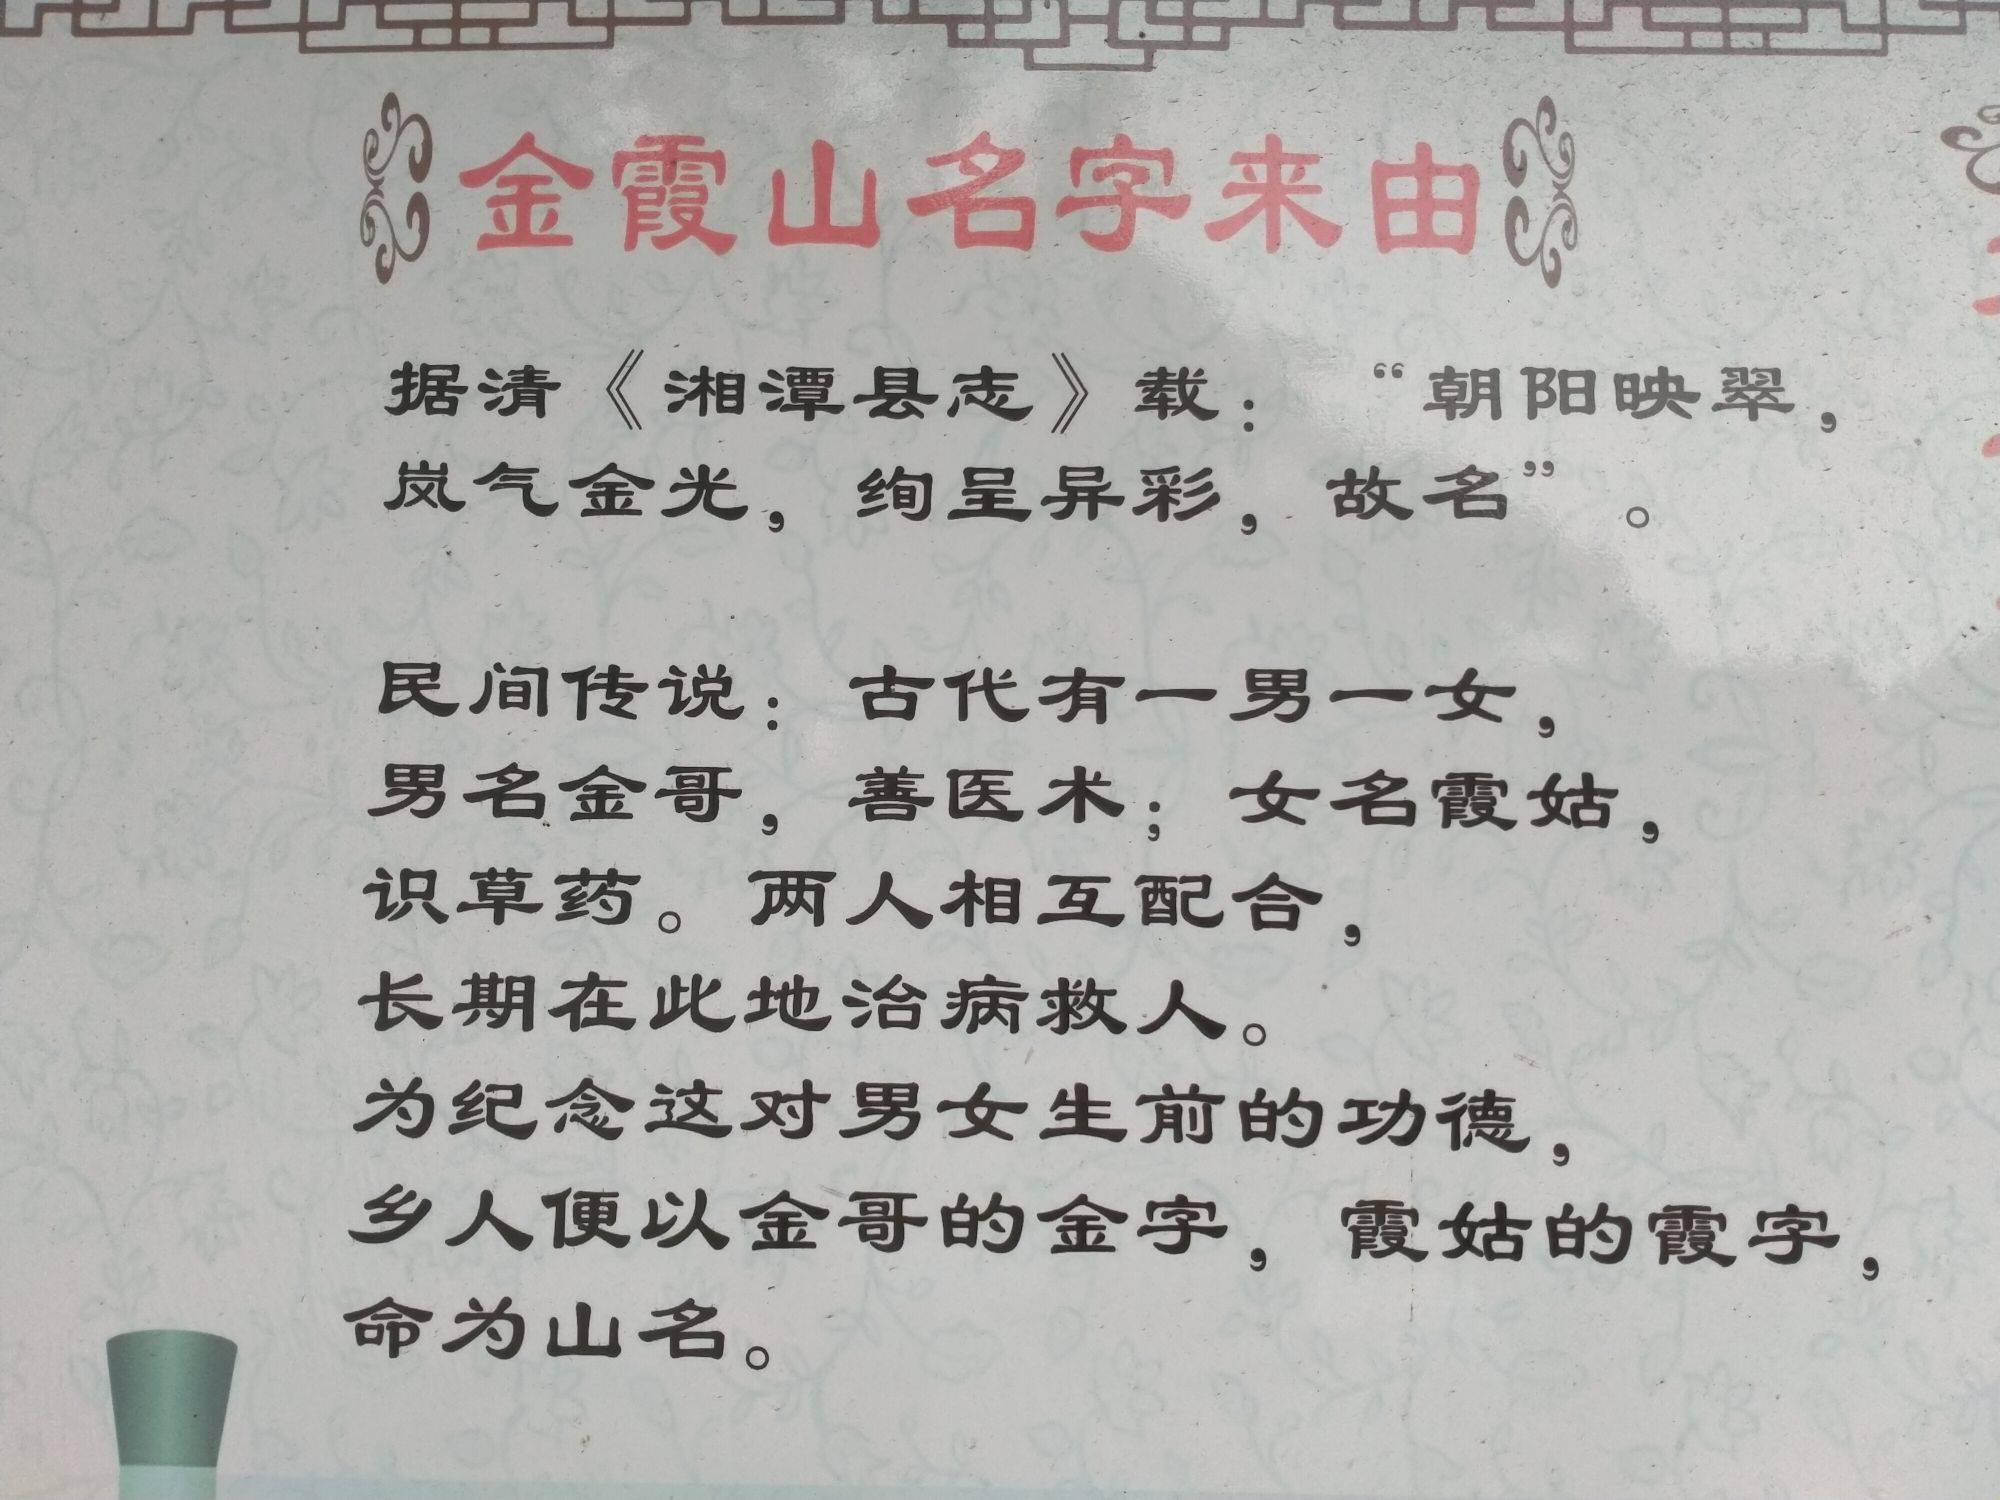 金霞山名字来由
据清《湘潭县志》载：“朝阳映翠，
岚气金光，绚呈异彩，故名”。
民间传说：古代有一男一女，
男名金哥，善医术；女名霞姑，
识草药。两人相互配合，
长期在此地治病救人。
为纪念这对男女生前的功德，
乡人便以金哥的金字，霞姑的霞字，
命为山名。